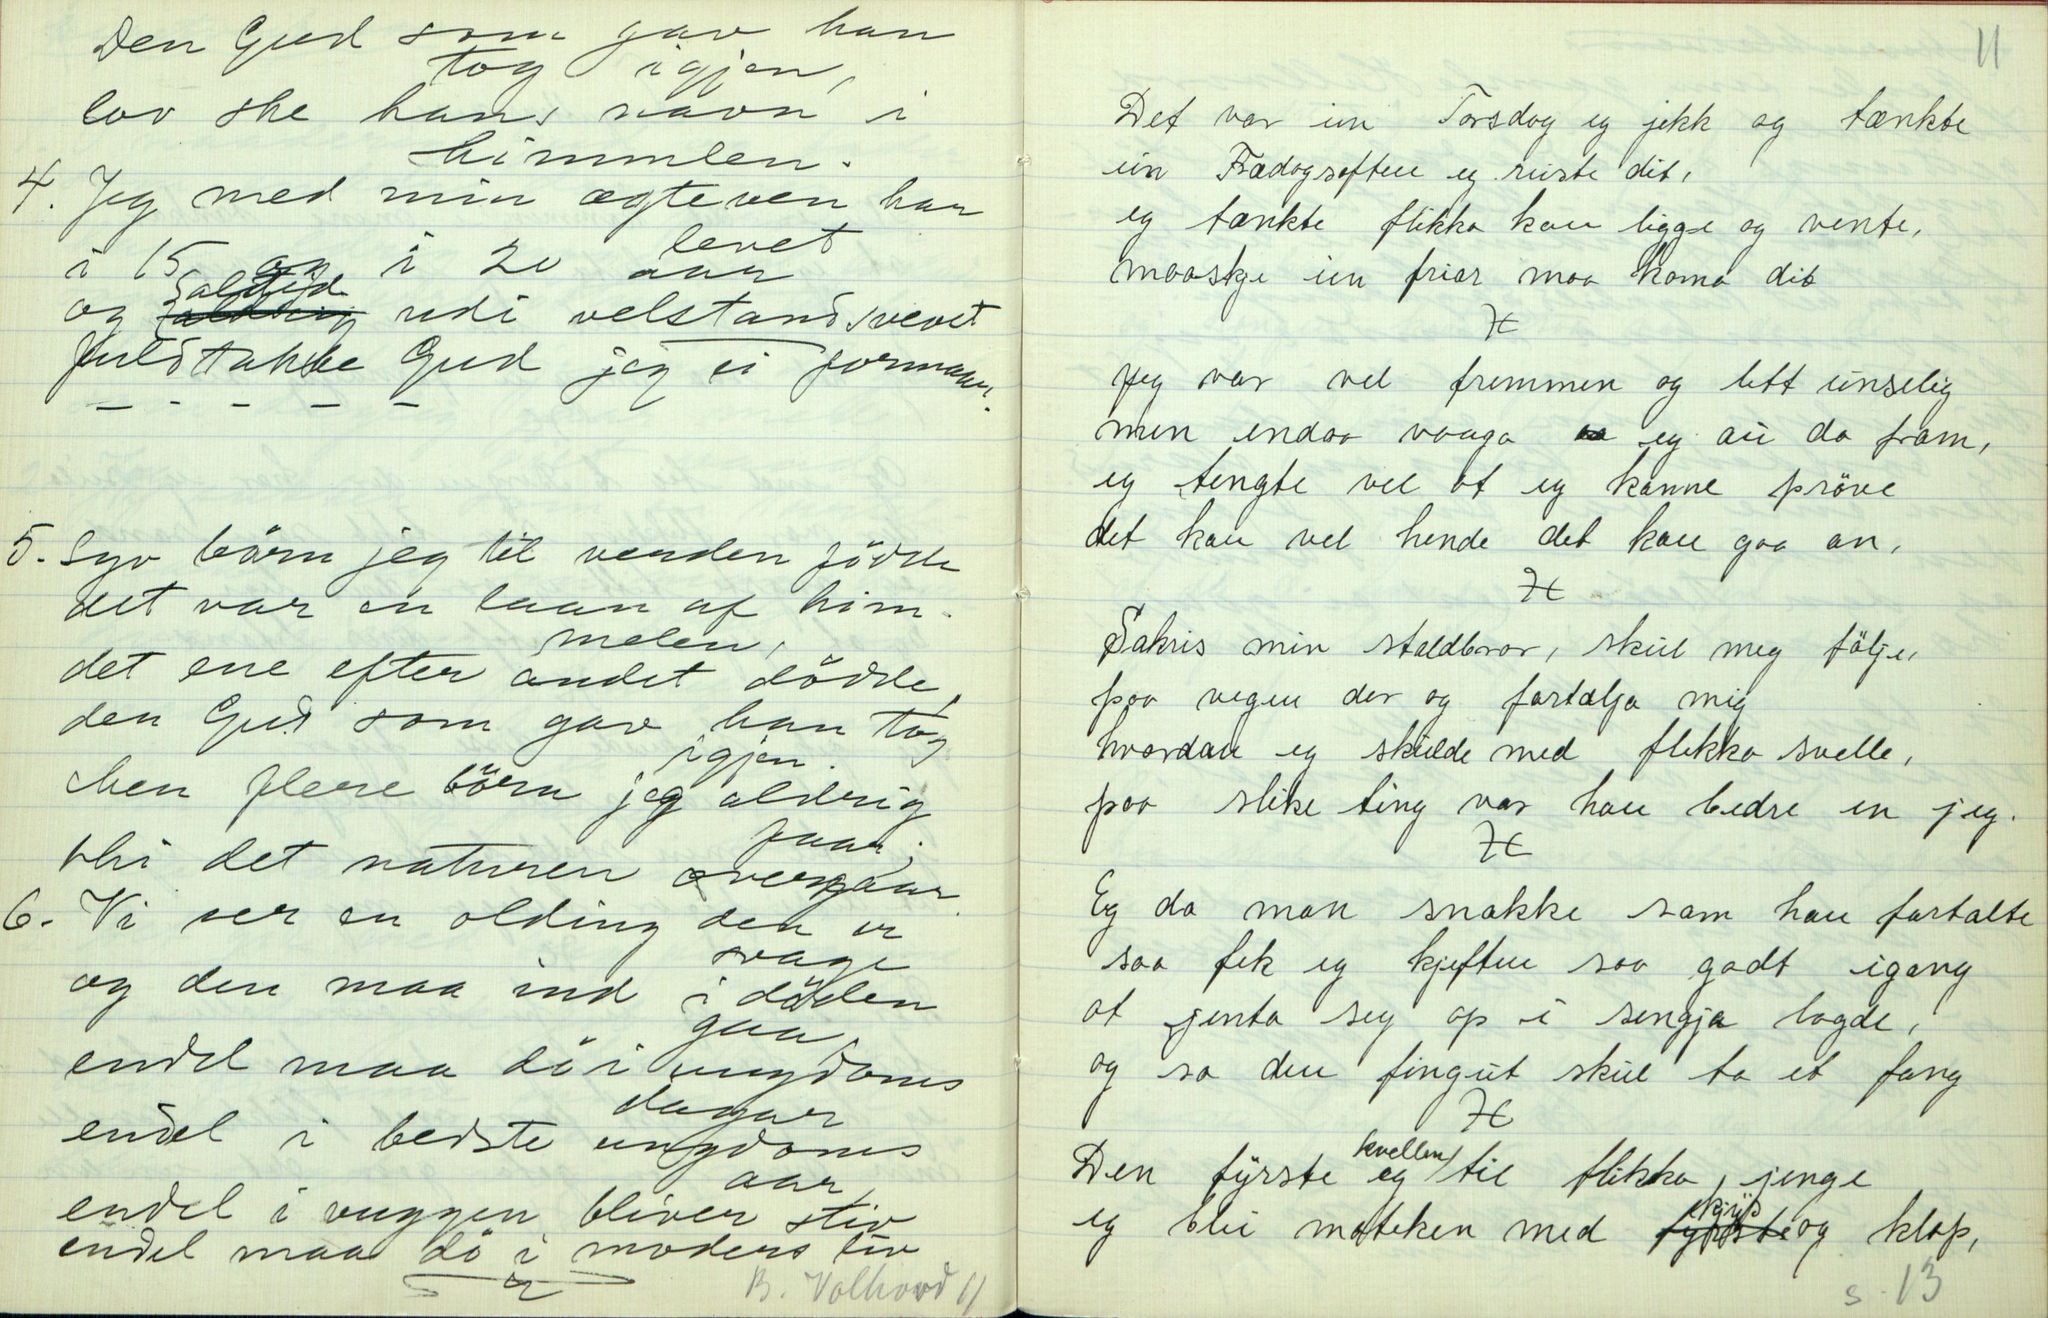 Den Gud som gav han
tog igjen,
lov ske hans navn i
himmlen.
4. Jeg med min ægteven har
levet
i 15 og i 20 aar
altid
og udi velstand svevet
fuldtakke Gud jeg ei formaar.
5. Syv börn jeg til verden födde
det var en laan af him-
melen,
det ene efter andet dödde,
den Gud som gav han tog
igjen.
Men flere börn jeg aldrig
faar,
thi det naturen overgaar.
6. Vi ser en olding den er
svage
og den maa ind i döden
gaa
endel maa dö i ungdoms
dagar
endel i bedste ungdoms
aar,
endel i vuggen bliver stiv
endel maa dö i moders liv
B. Volhovd 11
11
Det var ein Torsdag eg jekk og tænkte
ein Frædagsaften eg reiste dit,
eg tænkte flikka kan ligge og vente,
maaskje ein friar maa koma dit
Jeg var vel fremmen og litt einselig
men endaa vaaga eg au da fram,
eg tengte vel at eg kanne pröve
det kan vel hende det kan gaa an,
Sakris min staldbror, skul meg följe,
paa vegen der og fortælja mig
hvordan eg skulde med flikka svelle,
paa slike ting var han bedre en jeg.
Eg da man snakke som han fortalte
saa fek eg kjeften saa godt igang
at jenta seg op i sengja lagde,
og sa den fingut skul ta et fang
kvellen
Den fyrste eg til flikka jenge
skjys
eg blei motteken med og klap,
s. 13